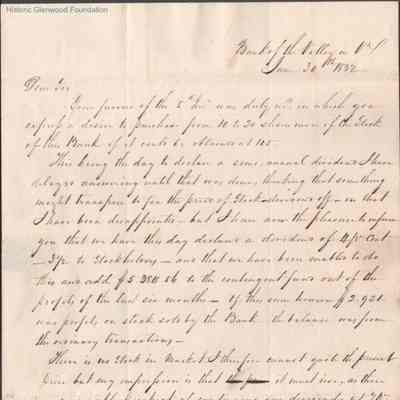 Historic Glenwood Foundation
Bank of the Valley in Va
June 30th 1832
Dear Sir
Your favour of the 5th Int was duly recd in which you
express a desire to purchase from 10 to 20 shares more of the Stock
of this Bank if it could be obtained at 105.
This being the day to declare a semi annual dividend I have
delayed answering until that was done, thinking that something
might transpire to fix the price of Stock dividend off - in that
I have been disappointed - but I have now the pleasure to inform
you that we have this day declared a dividend of 4 pr Cent
to Stockholders - and that we have been enabled to do
this and add $5
to the contingent fund out of the
profits of the last six months - Of this sum however $2.921
was profits on stock sold by the Bank the balance was from
the ordinary transactions -
There is no Stock in Market & I therefore cannot quote the present
price but my impression is that it must rise, as there